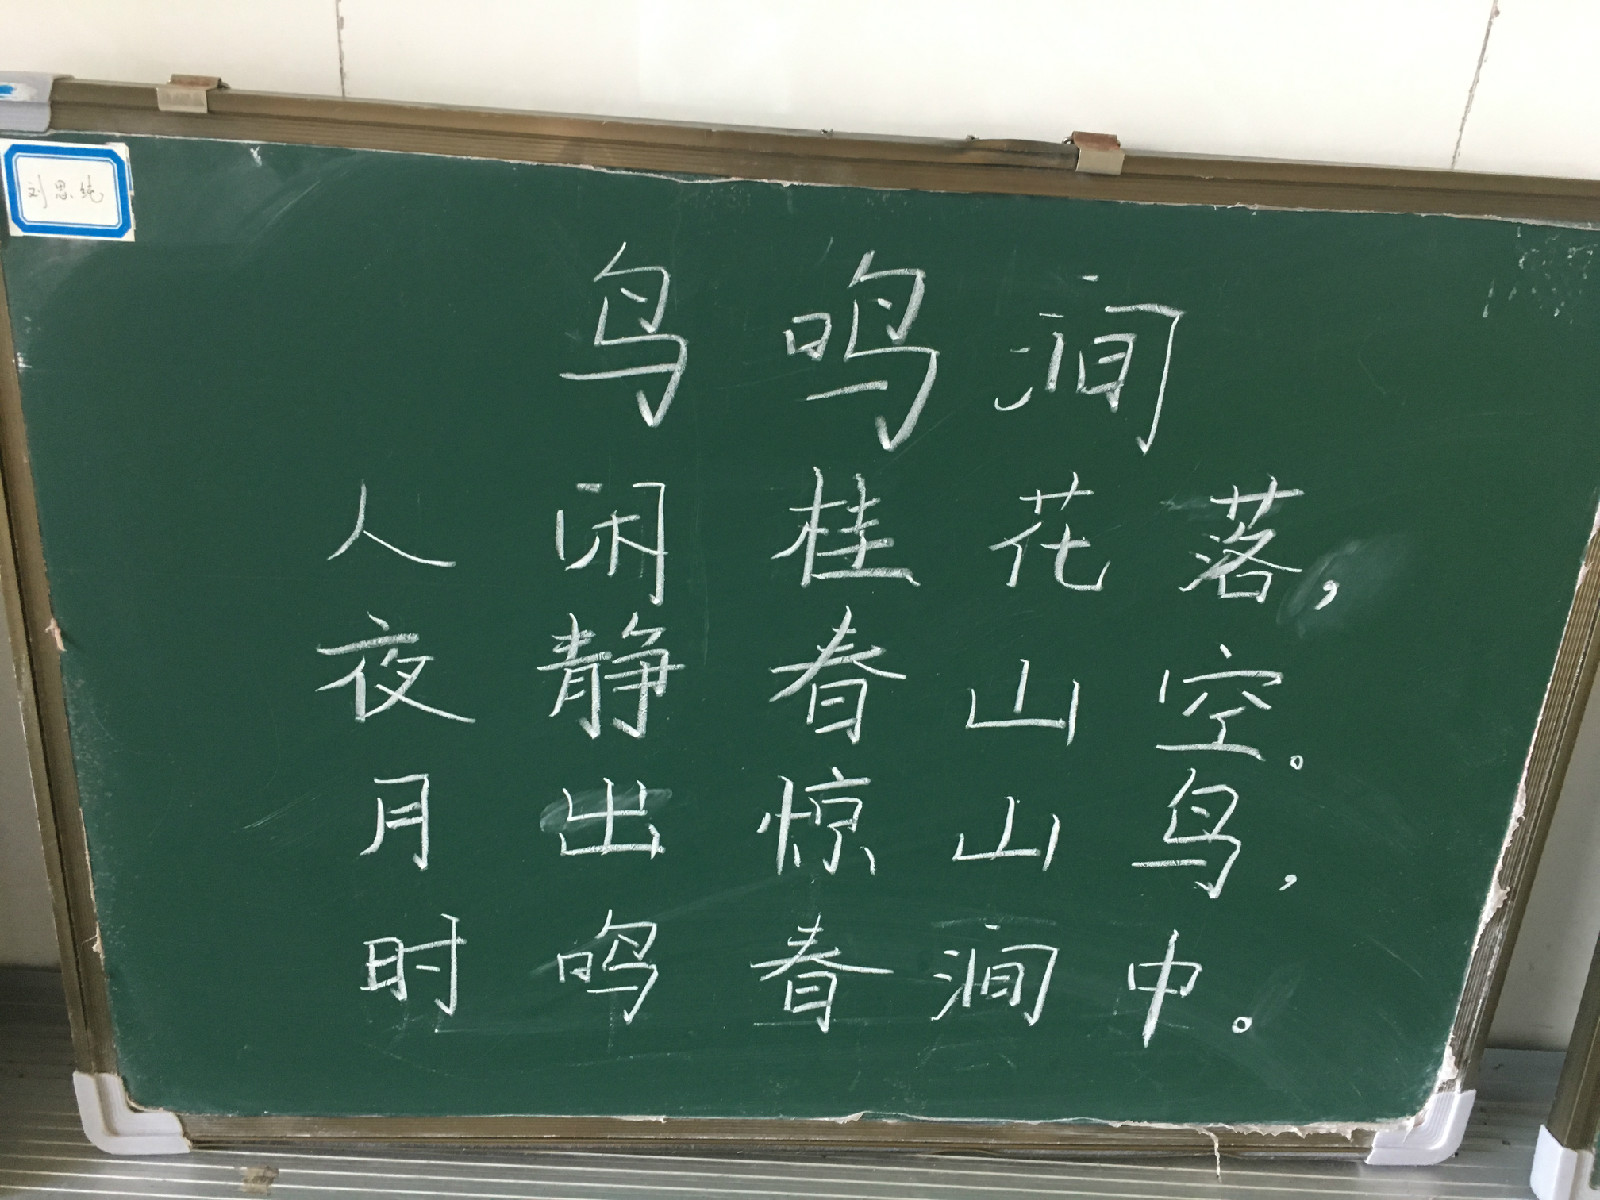 刘思纯
鸟鸣涧
人闲桂花落，
夜静春山空。
月出惊山鸟，
时鸣春涧中。